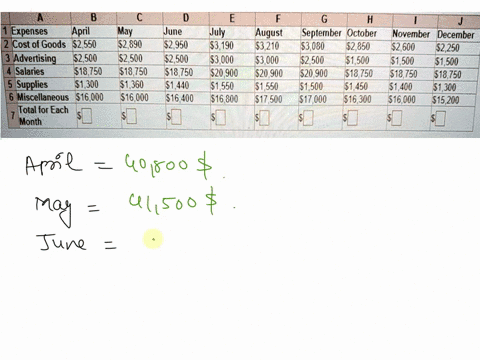 A B C D E F G H I J
1 Expenses April May June July August September October November December
2 Cost of Goods $2,550 $2,890 $2,950 $3,190 $3,210 $3,080 $2,850 $2,600 $2,250
3 Advertising $2,500 $2,500 $2,500 $3,000 $3,000 $2,500 $1,500 $1,500 $1,500
4 Salaries $18,750 $18,750 $18,750 $20,900 $20,900 $20,900 $18,750 $18,750 $18,750
5 Supplies $1,300 $1,360 $1,440 $1,550 $1,550 $1,500 $1,450 $1,400 $1,300
6 Miscellaneous $16,000 $16,000 $16,400 $16,800 $17,500 $17,000 $16,300 $16,000 $15,200
7 Total for Each Month $ $ $ $ $ $ $ $ $
April = 40,800 $.
May = 41,500 $.
June =